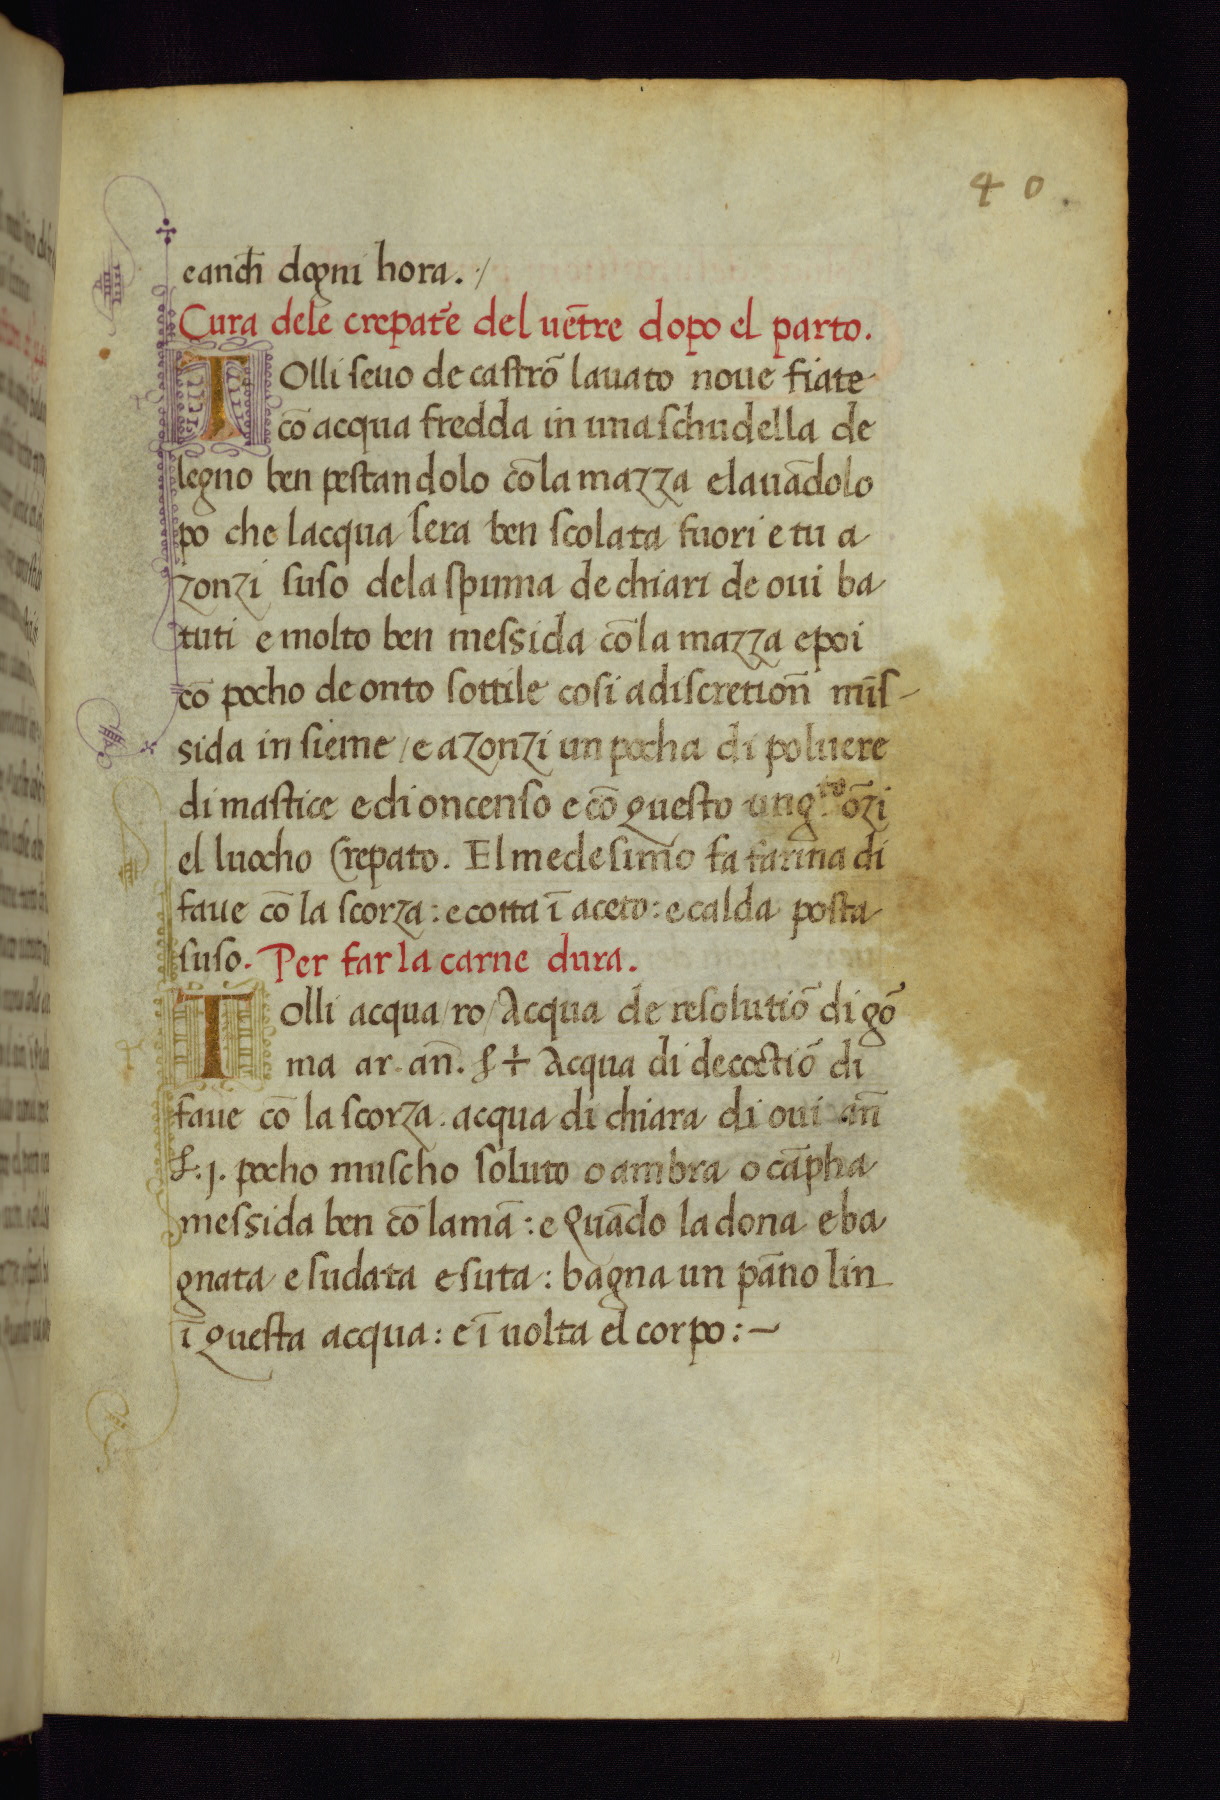 40
e anch dogni hora. /
Cura dele crepate del uētre dopo el parto.
TOlli seuo de castrō lauato noue fiate
cō acqua fredda in una schudella de
legno ben pestandolo cō la mazza e lauādolo
po che lacqua sera ben scolata fuori e tu a
zonzi suso de la spuma de chiari de oui ba
tuti e molto ben messida cō la mazza e poi
cō pocho de onto sottile cosi a discretioñ mīs-
sida insieme / e azonzi un pocha di poluere
di mastice e di oncenso e cō questo ung.to ōzi
el luocho Crepato. El medesimo fa farina di
faue cō la scorza : e cotta ī aceto : e calda posta
suso. Per far la carne dura.
TOlli acqua / ro / Acqua de resolutiō di gō
ma ar. añ. ℔ + Acqua di decoctiō di
faue cō la scorza. acqua di chiara di oui añ
℔. j. pocho muscho soluto o ambra o cāpha
messida ben cō la mā : e Quādo la dona e ba
gnata e sudata e suta : bagna un pāno lin
ī questa acqua : e ī uolta el corpo : ~